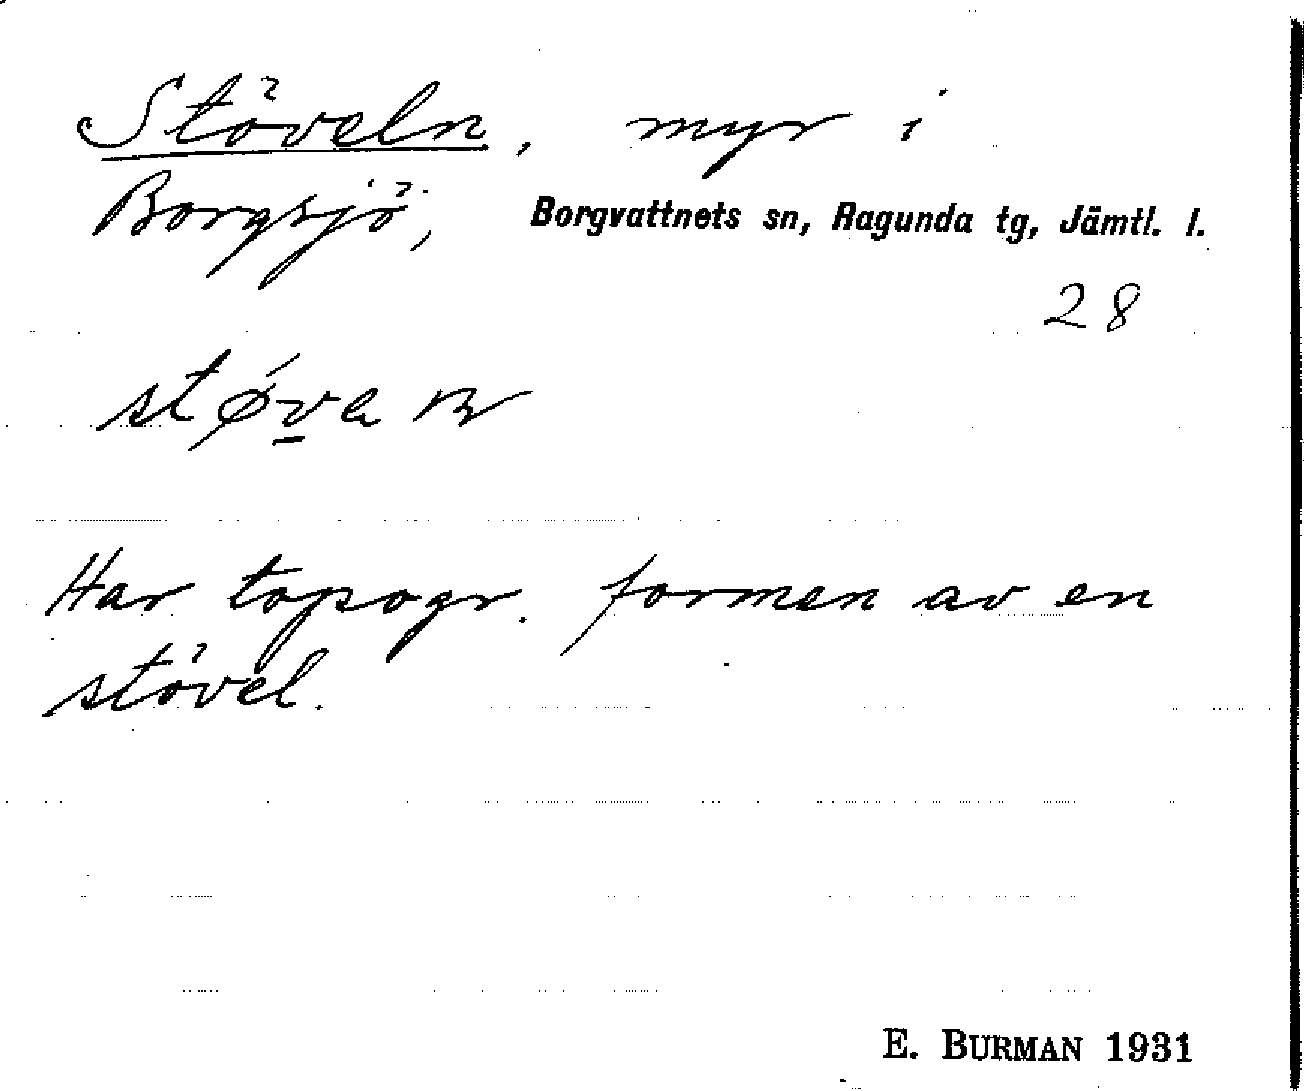 Stöveln, myr i
Borgsjö, Borgvattnets sn, Ragunda tg, Jämtl. l.
28
Har topogr. formen av en
stövel.
E. BURMAN 1931